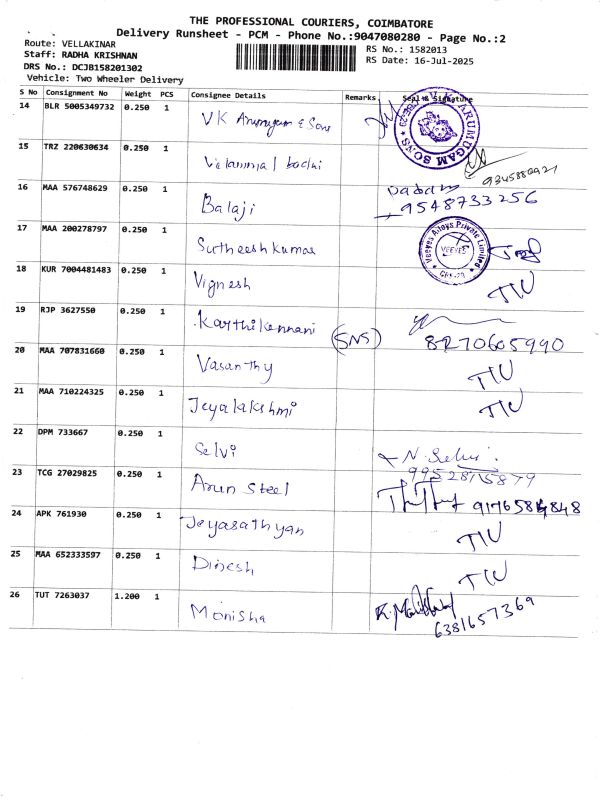 THE PROFESSIONAL COURIERS, COIMBATORE
Delivery Runsheet - PCM - Phone No.:9047080280 - Page No.:2
Route: VELLAKINAR
Staff: RADHA KRISHNAN
DRS No.: DCJB158201302
Vehicle: Two Wheeler Delivery
RS No.: 1582013
RS Date: 16-Jul-2025
S No Consignment No Weight PCS Consignee Details Remarks Seal & Signature
14 BLR 5005349732 0.250 1 VK Arumugam & Sons
V.K. ARUMUGAM SONS
15 TRZ 220630634 0.250 1 Velammal
16 MAA 576748629 0.250 1 Balaji 9548733256
17 MAA 200278797 0.250 1 Sutheeshkumar
Veeyes Alloys Private Limited
VEEYES
18 KUR 7004481483 0.250 1 Vignesh TIU
19 RJP 3627550 0.250 1 Karthikennani (SNS) 8270605990
20 MAA 707831660 0.250 1 Vasanthy TIU
21 MAA 710224325 0.250 1 Jeyalakshmi TIU
22 DPM 733667 0.250 1 Selvi N. Selvi
23 TCG 27029825 0.250 1 Arun Steel
24 APK 761930 0.250 1 Jeyasathyan TIU
25 MAA 652333597 0.250 1 Dinesh TIU
26 TUT 7263037 1.200 1 Monisha 6381657369